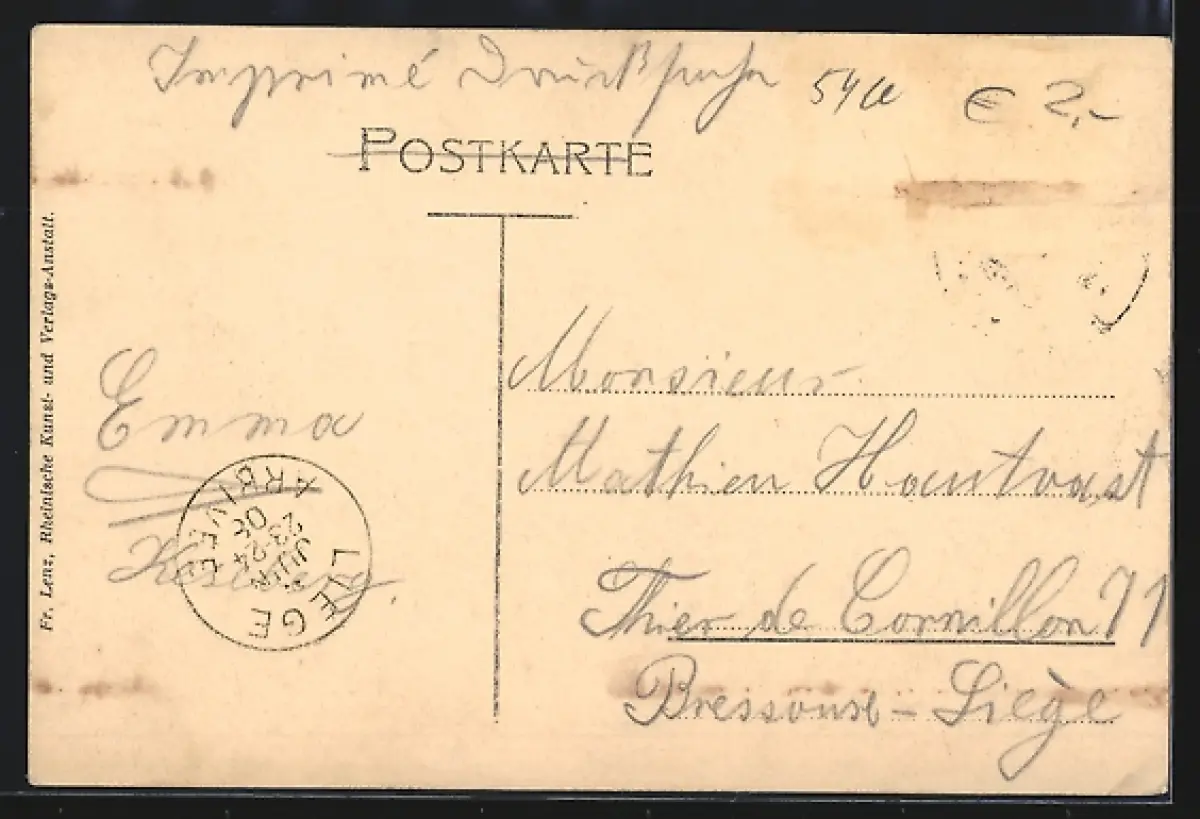 Imprimé Drucksache 54a € 2,-
POSTKARTE
Fr. Lenz, Rheinische Kunst- und Verlags-Anstalt.
Emma
LIEGE
ARRIVEE
23-24
JUIN
Monsieur
Mathieu Hautvast
Thier de Cornillon 71
Bressoux - Liège